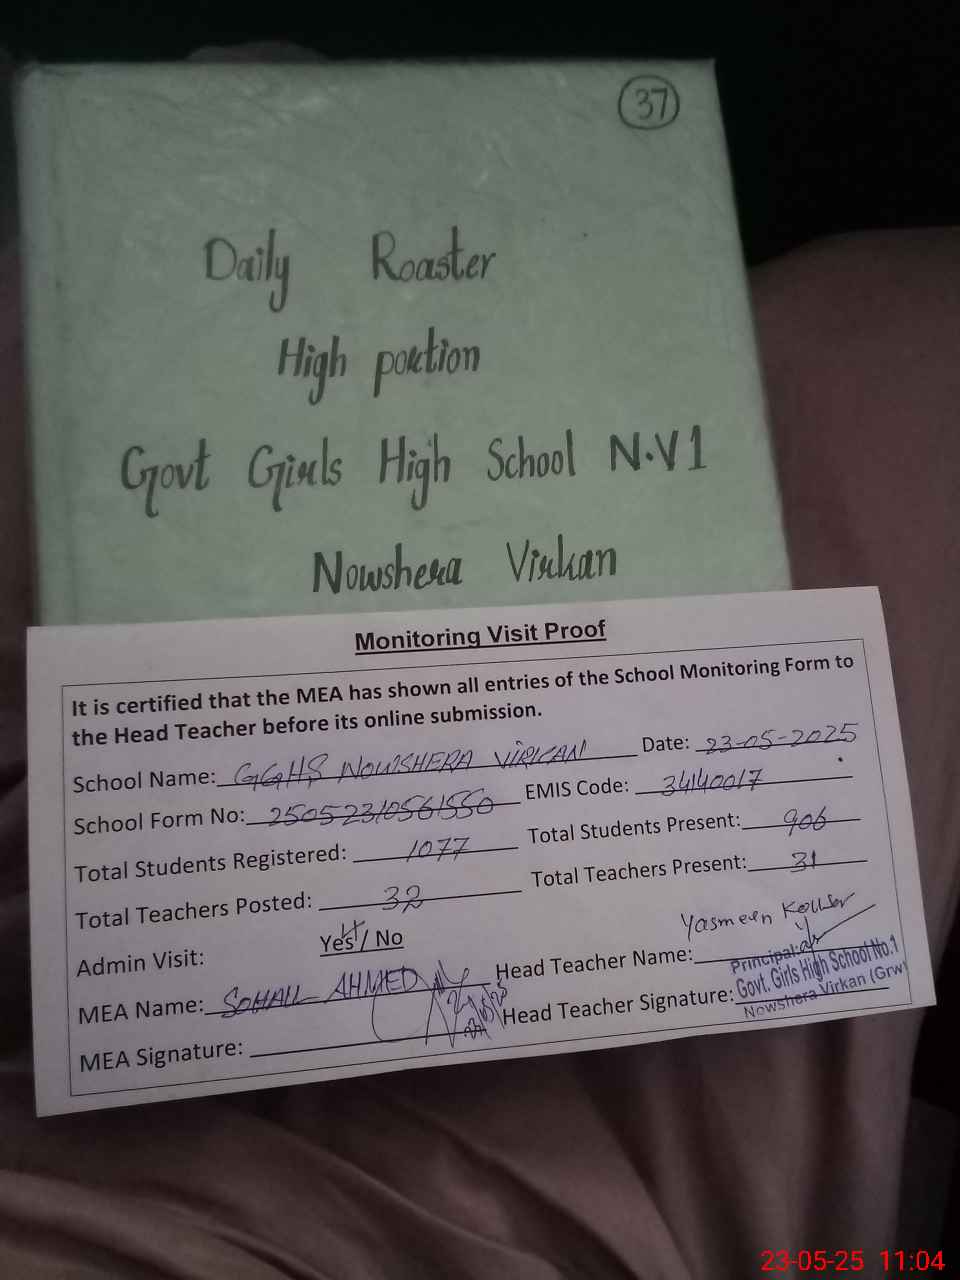 37
Daily Roaster
High portion
Govt Girls High School N.V1
Nowshera Virkan
Monitoring Visit Proof
It is certified that the MEA has shown all entries of the School Monitoring Form to
the Head Teacher before its online submission.
School Name: GGHS NOWSHERA VIRKAN Date: 23-05-2025
School Form No: 25052310561550 EMIS Code: 34140017
Total Students Registered: 1077 Total Students Present: 906
Total Teachers Posted: 32 Total Teachers Present: 31
Admin Visit: Yes / No
Yasmeen Kousar
MEA Name: SOHAIL AHMED Head Teacher Name:
MEA Signature: Head Teacher Signature:
Principal
Govt. Girls High School No.1
Nowshera Virkan (Grw)
23-05-25 11:04